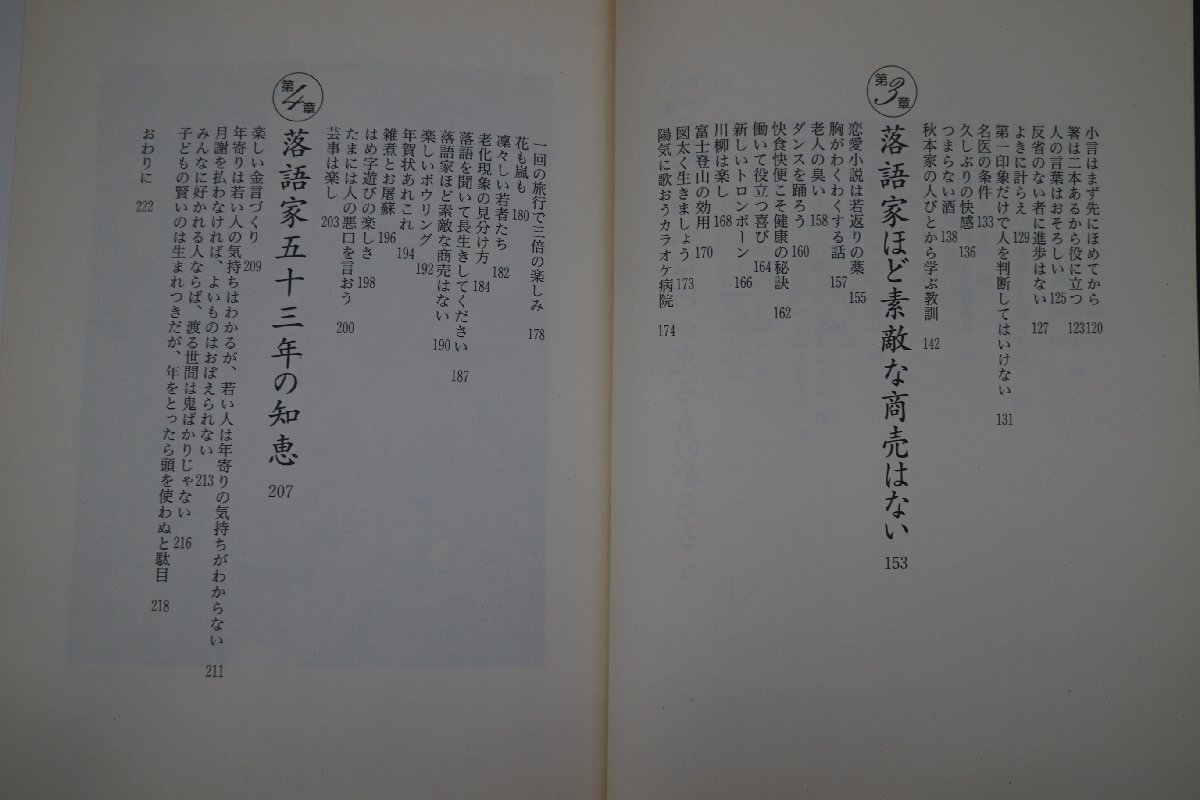 小言はまず先にほめてから 120
箸は二本あるから役に立つ 123
人の言葉はおそろしい 125
反省のない者に進歩はない 127
よきに計らえ 129
第一印象だけで人を判断してはいけない 131
名医の条件 133
久しぶりの快感 136
つまらない酒 138
秋本家の人びとから学ぶ教訓 142
第3章 落語家ほど素敵な商売はない 153
恋愛小説は若返りの薬 155
胸がわくわくする話 157
老人の臭い 158
ダンスを踊ろう 160
快食快便こそ健康の秘訣 162
働いて役立つ喜び 164
新しいトロンボーン 166
川柳は楽し 168
富士登山の効用 170
図太く生きましょう 173
陽気に歌おうカラオケ病院 174
一回の旅行で三倍の楽しみ 178
花も嵐も 180
凜々しい若者たち 182
老化現象の見分け方 184
落語を聞いて長生きしてください 187
落語家ほど素敵な商売はない 190
楽しいボウリング 192
年賀状あれこれ 194
雑煮とお屠蘇 196
はめ字遊びの楽しさ 198
たまには人の悪口を言おう 200
芸事は楽し 203
第4章 落語家五十三年の知恵 207
楽しい金言づくり 209
年寄りは若い人の気持ちはわかるが、若い人は年寄りの気持ちがわからない 211
月謝を払わなければ、よいものはおぼえられない 213
みんなに好かれる人ならば、渡る世間は鬼ばかりじゃない 216
子どもの賢いのは生まれつきだが、年をとったら頭を使わぬと駄目 218
おわりに 222